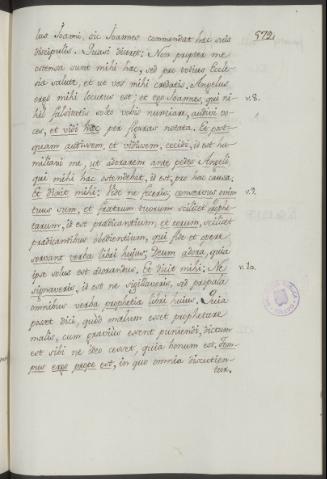 572.
lus Joanni, sic Joannes commendat hac sola
discipulis. Quasi diceret: Non propter me
ostensa sunt mihi hac, sed pro totius Eccle-
sia salute, et ut vos mihi credatis, Angelus
ergo mihi locutus est; et ego Joannes, qui ni-
hil falsitatis soleo vobis nunciare, audivi vo-
ces, et vidi hac per figuras notata. Et post-
quam audivissem, et vidissem, cecidi, id est hu-
miliavi me, ut adorarem ante pedes Angeli
qui mihi hac ostendebat, id est, pro hac causa.
Et dicit mihi: Vide ne feceris; conservus enim
tuus sum, et fratrum tuorum scilicet Prophe-
tarum, id est pradicantium, et eorum, scilicet
pradicantibus obedientium, qui fide et opere
servant verba libri hujus; Deum adora, quia
ipse solus est adorandus. Et dicit mihi: Ne
signaveris, id est ne sigillaveris, sed propala
omnibus verba prophetia libri hujus. Quia
posset dici, quòd malum esset prophetare
malis, cum gravius essent puniendi, dictum
est sibi ne ideo cesset, quia bonum est. Tem-
pus ergo prope est, in quo omnia discutien-
tur.
v. 8.
v. 9.
v. 10.